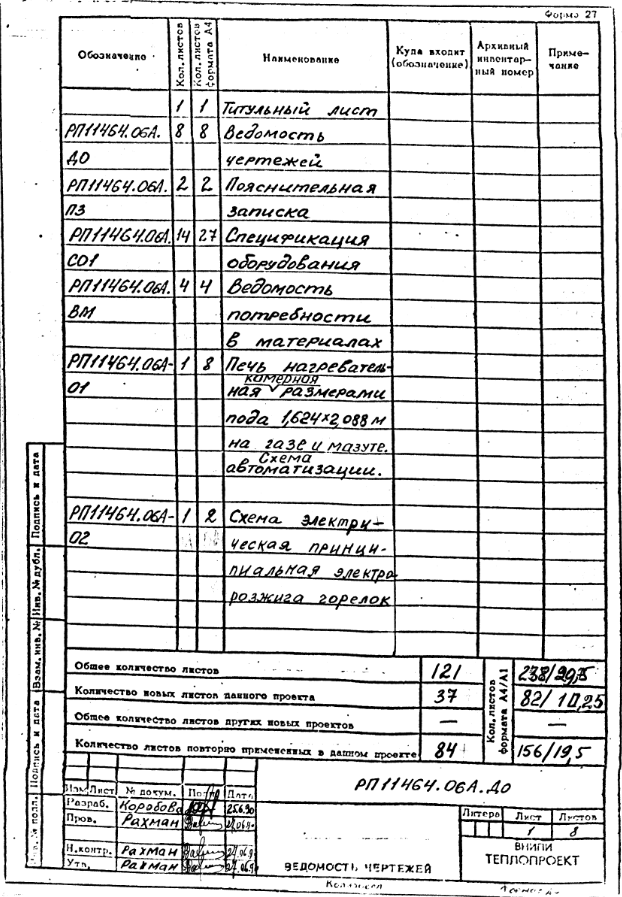 Форма 27
Обозначение Кол. листов Кол. листов формата А4 Наименование Куда входит (обозначение) Архивный инвентарный номер Примечание
1 1 Титульный лист
РП11464.06А. 8 8 Ведомость
ДО чертежей
РП11464.06А. 2 2 Пояснительная
ПЗ записка
РП11464.06А. 14 27 Спецификация
СО1 оборудования
РП11464.06А. 4 4 Ведомость
ВМ потребности
в материалах
РП11464.06А- 1 8 Печь нагреватель-
камерная
01 ная размерами
пода 1,624×2,088 м
на газе и мазуте.
Схема
автоматизации.
РП11464.06А- 1 2 Схема электри-
02 ческая принци-
пиальная электро
розжига горелок
Общее количество листов 121 Кол. листов формата А4/А1 238/29,75
Количество новых листов данного проекта 37 82/10,25
Общее количество листов других новых проектов — —
Количество листов повторно примененных в данном проекте 84 156/19,5
РП11464.06А.ДО
Изм. Лист № докум. Подп. Дата
Разраб. Коробова 25.6.90
Пров. Рахман
Н.контр. Рахман
Утв. Рахман
ВЕДОМОСТЬ ЧЕРТЕЖЕЙ
Литера Лист Листов
1 8
ВНИПИ
ТЕПЛОПРОЕКТ
Подпись и дата
Инв. № дубл.
Взам. инв. №
Подпись и дата
Инв. № подл.
Копировал